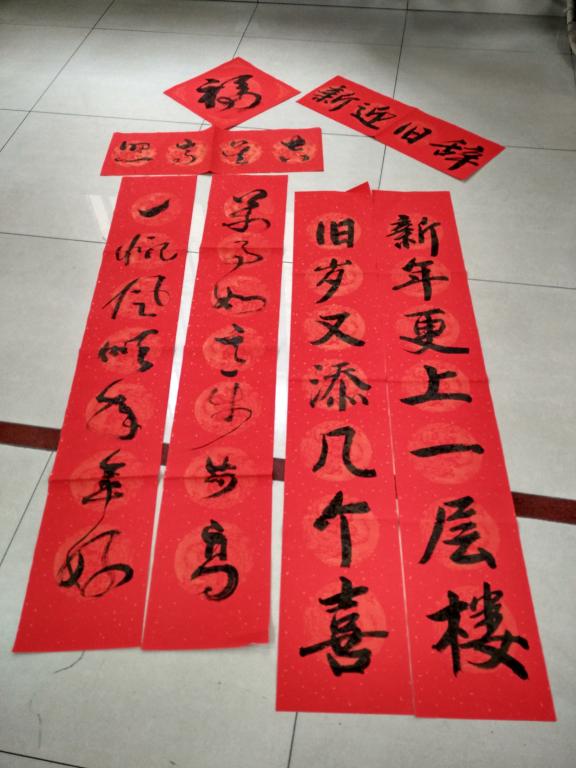 福
辞旧迎新
吉星高照
新年更上一层楼
旧岁又添几个喜
万事如意步步高
一帆风顺年年好